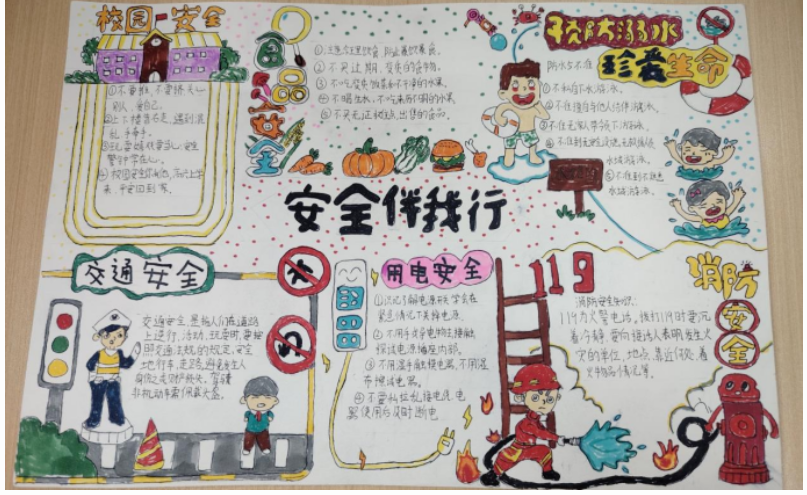 校园安全
①不要推,不要挤,关心
别人,爱自己。
②上下楼靠右走,遇到混
乱手牵手。
③玩耍嬉戏要当心,安全
警钟牢在心。
④校园安全你和他,高兴上学
来,平安回到家。
食品安全
②不买过期、变质的食物。
③不吃变质的蔬菜和不干净的水果
④不喝生水,不吃来历不明的小菜
⑤不买无证摊点出售的食品
预防溺水
珍爱生命
防水六不准
①不私自下水游泳。
②不准擅自与他人结伴游泳。
③不在无家人带领下游泳。
水域游泳。
⑤不准到不熟悉
水域游泳。
安全伴我行
交通安全
交通安全是指人们在道路
上进行活动、玩耍时,要按
照交通法规的规定,安全
地行车、走路,避免发生人
身伤亡或财产损失。骑
非机动车需佩戴头盔。
用电安全
①认识了解电源总开关,学会在
紧急情况下关掉电源。
②不用手或导电物去接触、
探试电源插座内部。
③不用湿手触摸电器,不用湿
布擦拭电器。
④不要私拉乱接电线,电
器使用后及时断电
119
消防安全
消防安全知识:
119为火警电话,拨打119时要沉
着冷静,要向接话人表明发生火
灾的单位,地点,靠近何处,着
火物品情况等。